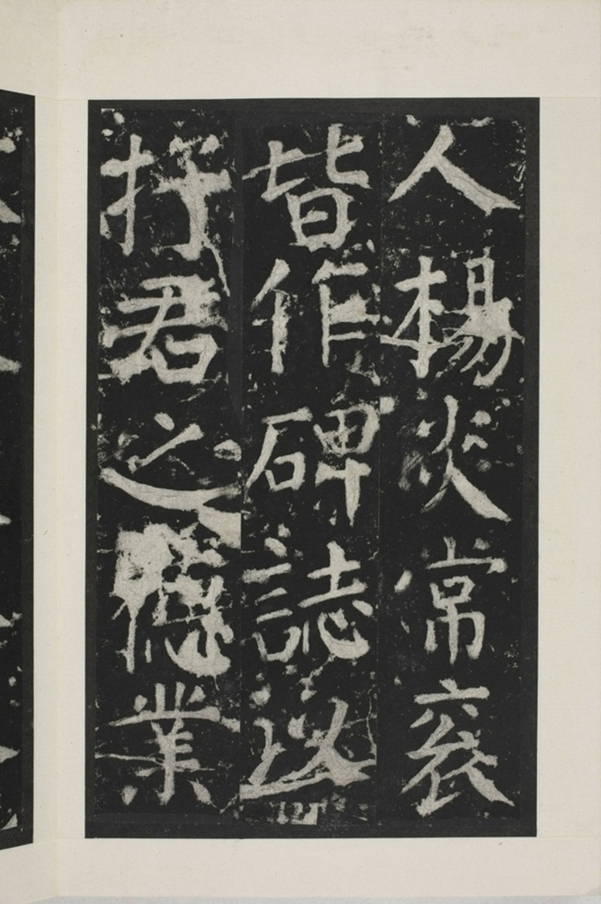 人楊炎常衮
皆作碑誌以
抒君之德業